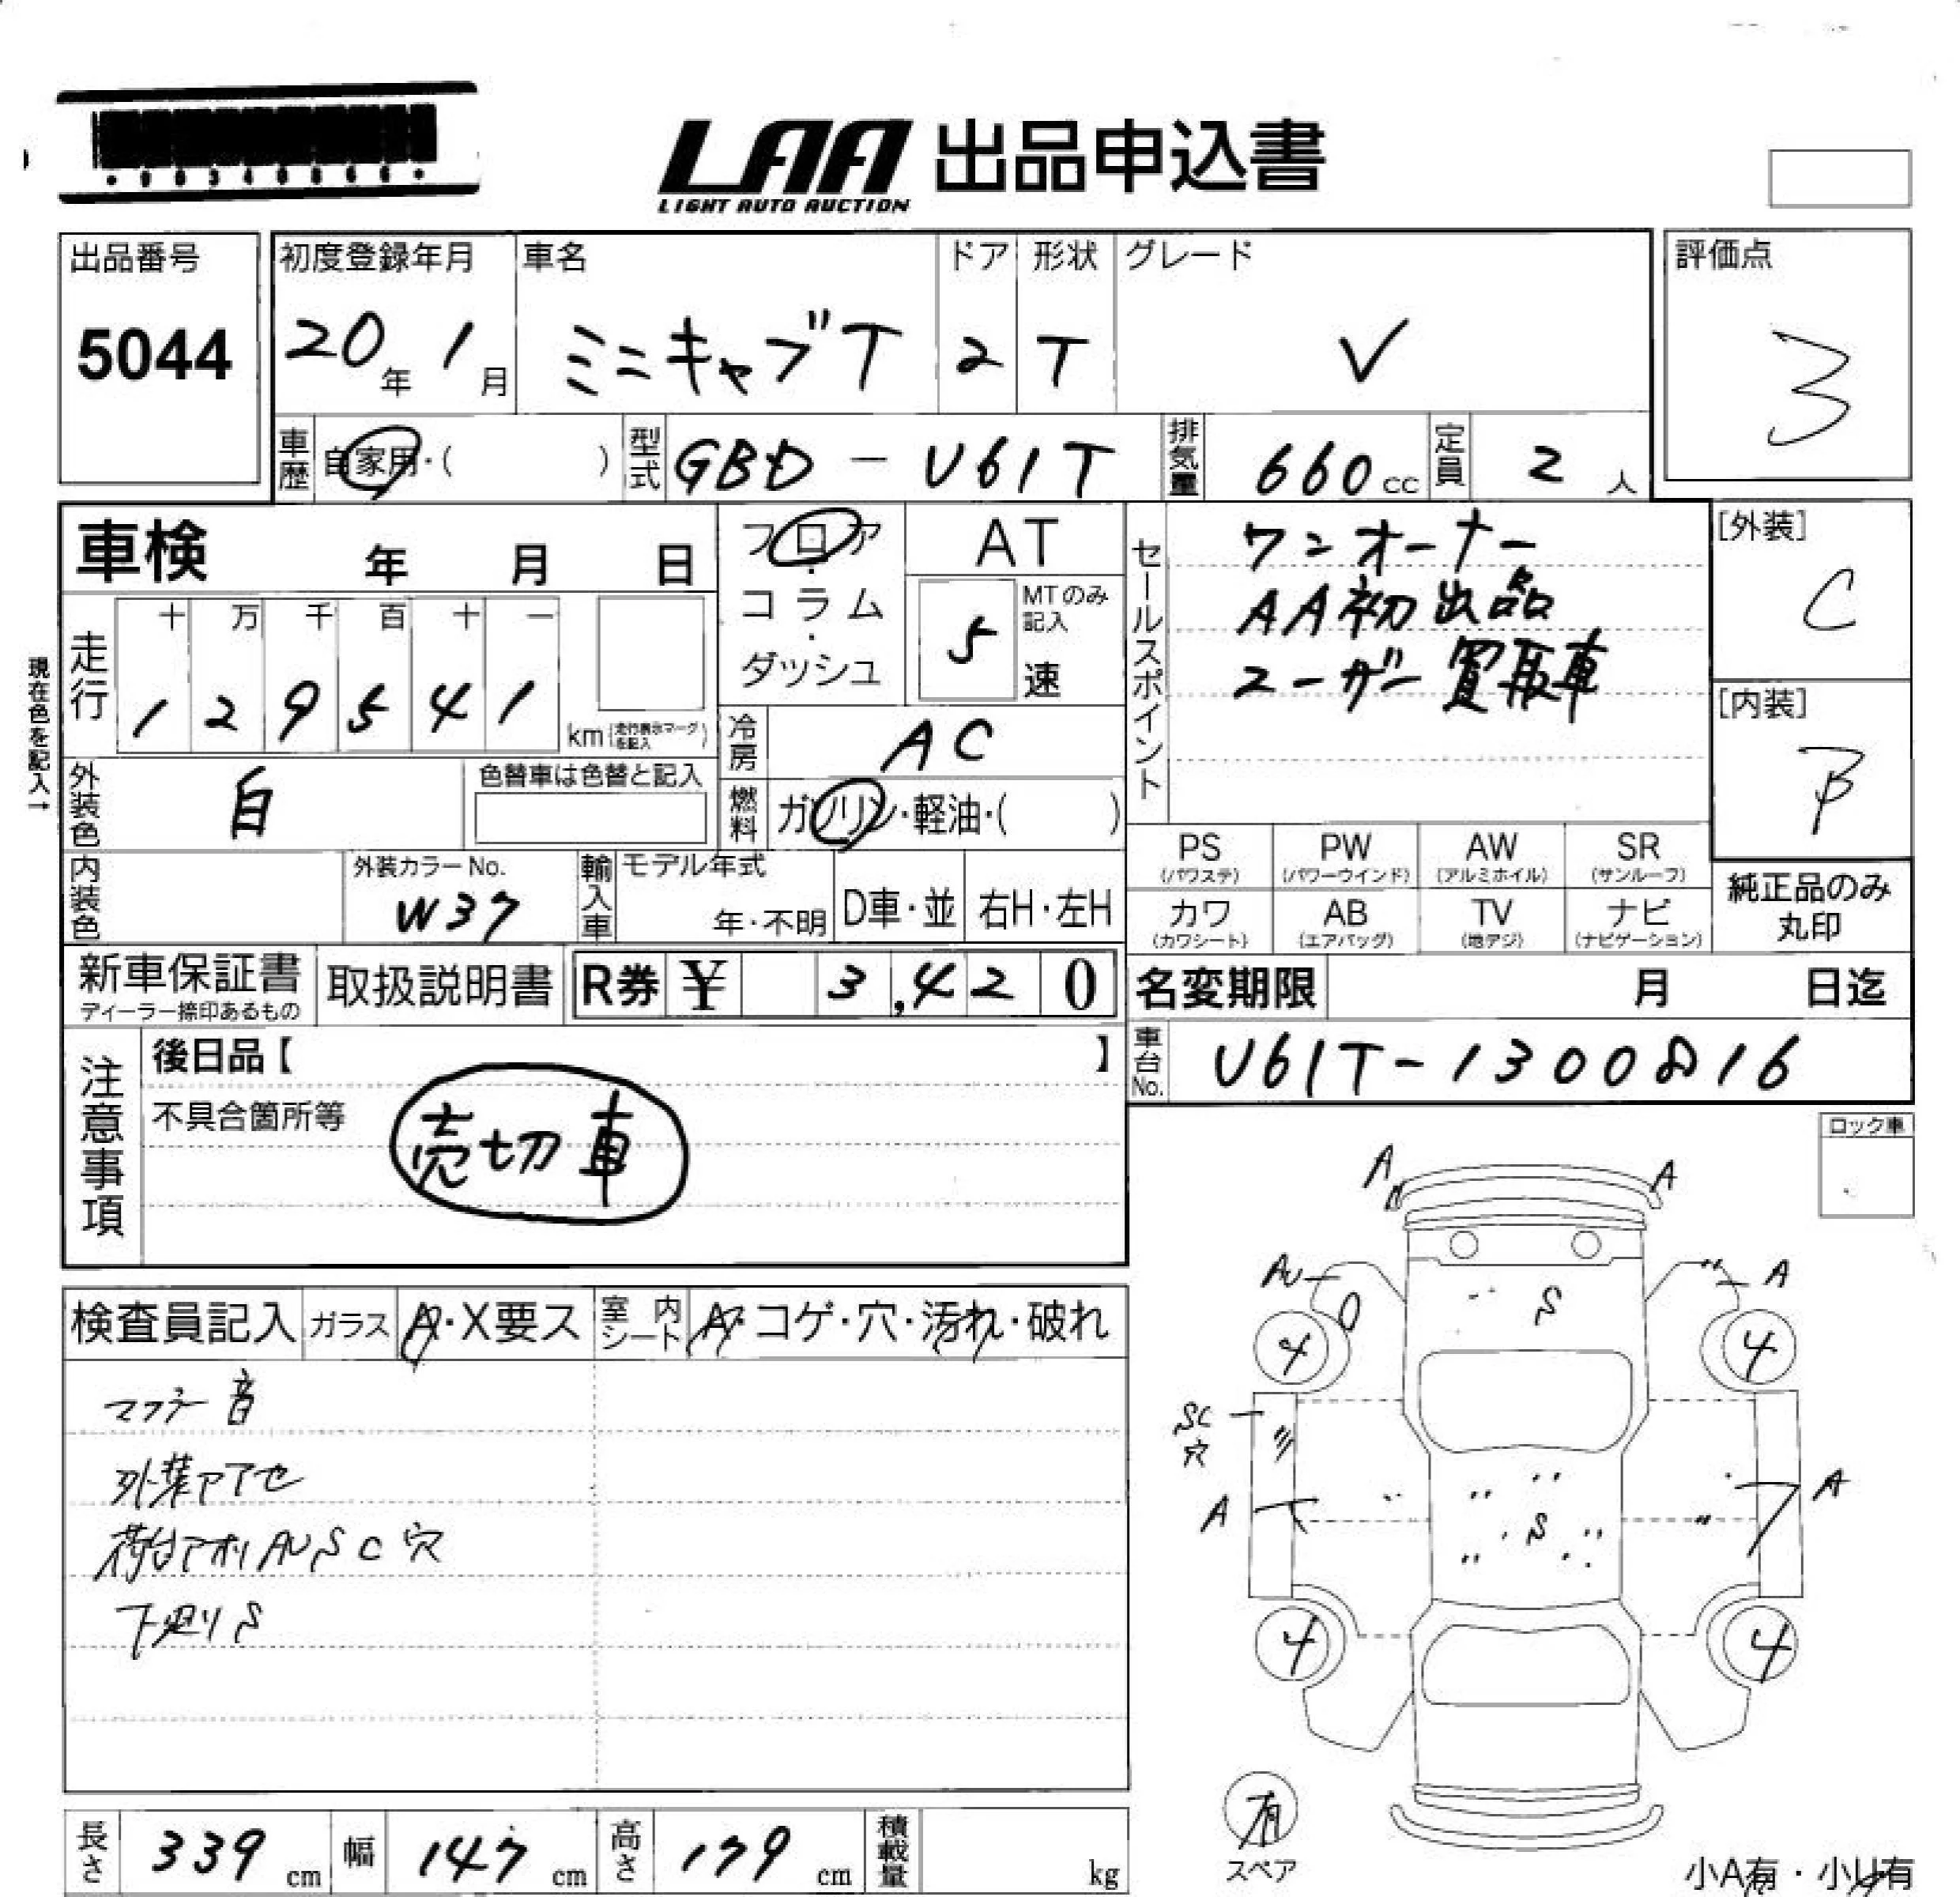 LAA 出品申込書
LIGHT AUTO AUCTION
出品番号
5044
初度登録年月
20年 1月
車名
ミニキャブT
ドア
2
形状
T
グレード
V
評価点
3
車歴 自家用・( )
型式 GBD-U61T
排気量 660cc
定員 2人
車検 年 月 日
走行
十 万 千 百 十 一
1 2 9 5 4 1
km(走行表示マークを記入)
現在色を記入→
フロア・コラム・ダッシュ
AT
MTのみ記入
5速
冷房 AC
燃料 ガソリン・軽油・( )
セールスポイント
ワンオーナー
AA初出品
ユーザー買取車
[外装]
C
[内装]
B
外装色 白
色替車は色替と記入
内装色
外装カラーNo.
W37
輸入車
モデル年式
年・不明
D車・並
右H・左H
PS (パワステ)
PW (パワーウインド)
AW (アルミホイル)
SR (サンルーフ)
カワ (カワシート)
AB (エアバッグ)
TV (地デジ)
ナビ (ナビゲーション)
純正品のみ
丸印
新車保証書
ディーラー捺印あるもの
取扱説明書
R券 ¥ 3,420
名変期限 月 日迄
車台No. U61T-1300816
注意事項
後日品【 】
不具合箇所等
売切車
ロック車
検査員記入
ガラス A・X要ス
室内シート A・コゲ・穴・汚れ・破れ
マフラー音
外装アアセ
荷台アオリ AU S C 穴
下廻り S
A
A
AU
A
S
4
4
SC
穴
A
A
S
4
4
有
スペア
小A有・小U有
長さ 339cm
幅 147cm
高さ 179cm
積載量 kg